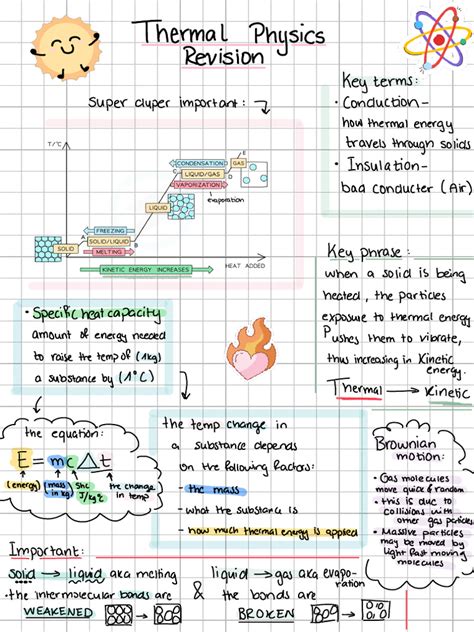 Thermal Physics
Revision
Super duper important:
T/°C
CONDENSATION
GAS
LIQUID/GAS
VAPORIZATION
evaporation
LIQUID
FREEZING
SOLID/LIQUID
MELTING
SOLID
A
B
C
D
E
KINETIC ENERGY INCREASES
HEAT ADDED
Key terms:
• Conduction-
how thermal energy
travels through solids
• Insulation-
bad conducter (Air)
Key phrase:
when a solid is being
heated, the particles
exposure to thermal energy
Pushes them to vibrate,
thus increasing in Kinetic
energy.
Thermal → Kinetic
• Specific heat capacity
amount of energy needed
to raise the temp of (1kg)
a substance by (1°C)
the equation:
E = mc△t
(energy)
mass
in kg
Shc
J/kg°c
the change
in temp
the temp change in
a substance depends
on the following factors:
- the mass
- what the substance is
- how much thermal energy is applied
Brownian
motion:
• Gas molecules
move quick & random
• this is due to
collisions with
other gas particles
• Massive particles
may be moved by
light fast moving
molecules
Important:
solid → liquid aka melting
• the intermolecular bonds are
WEAKENED
&
liquid → gas aka evapo-
ration
the bonds are
BROKEN